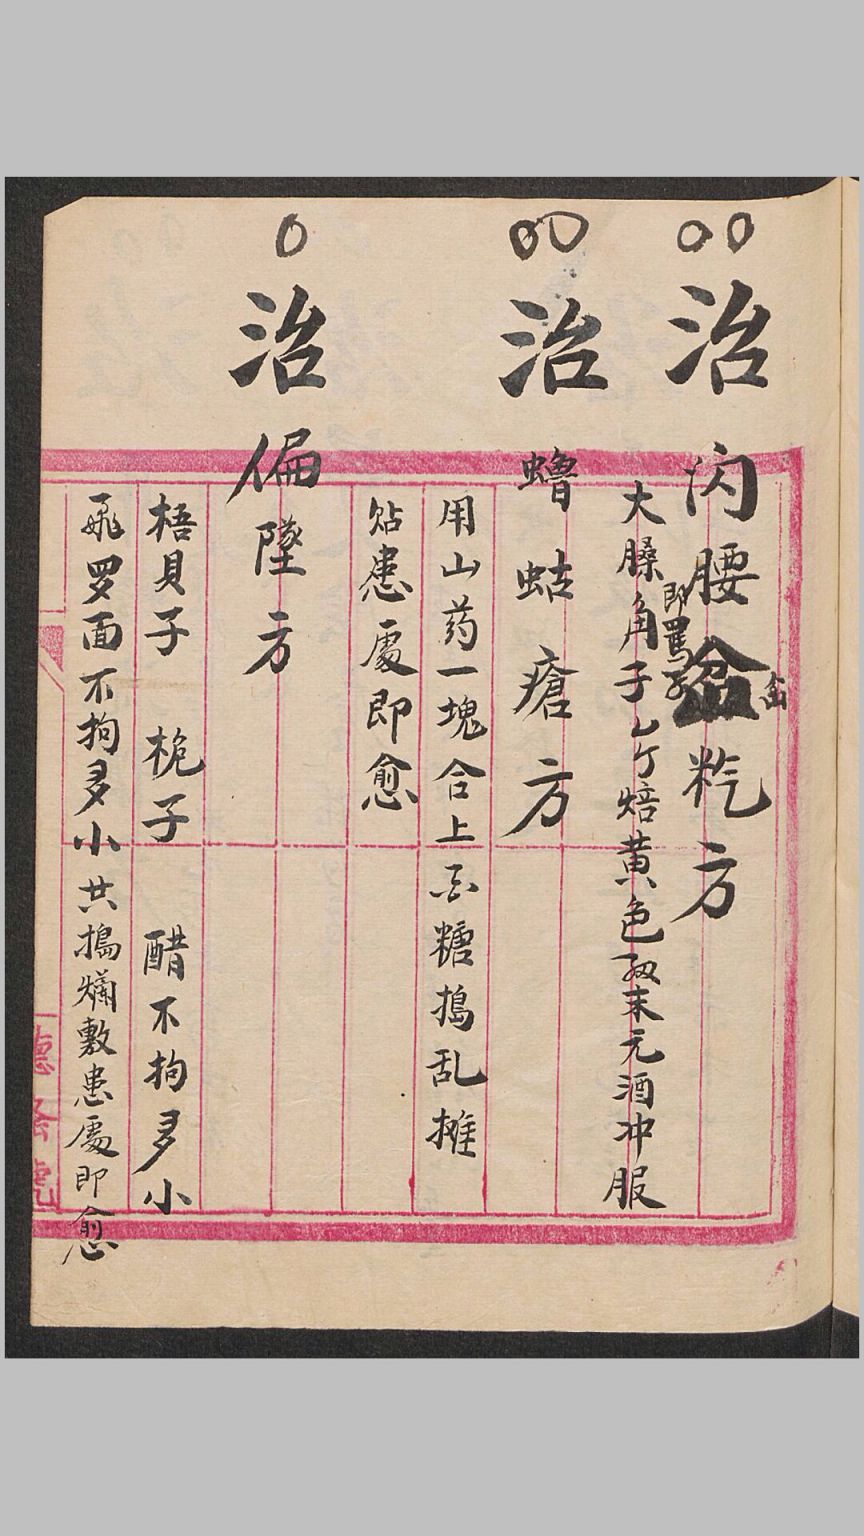 〇〇治闪腰岔䊠方
岔
即骂子
大臊角子 焙黄色 末元酒冲服
〇〇治蟾蛄瘡方
用山药一塊合上白糖搗乱摊
贴患處即愈
〇治偏墜方
梧貝子 栀子 醋不拘多小
飛罗面不拘多小共搗爛敷患處即愈